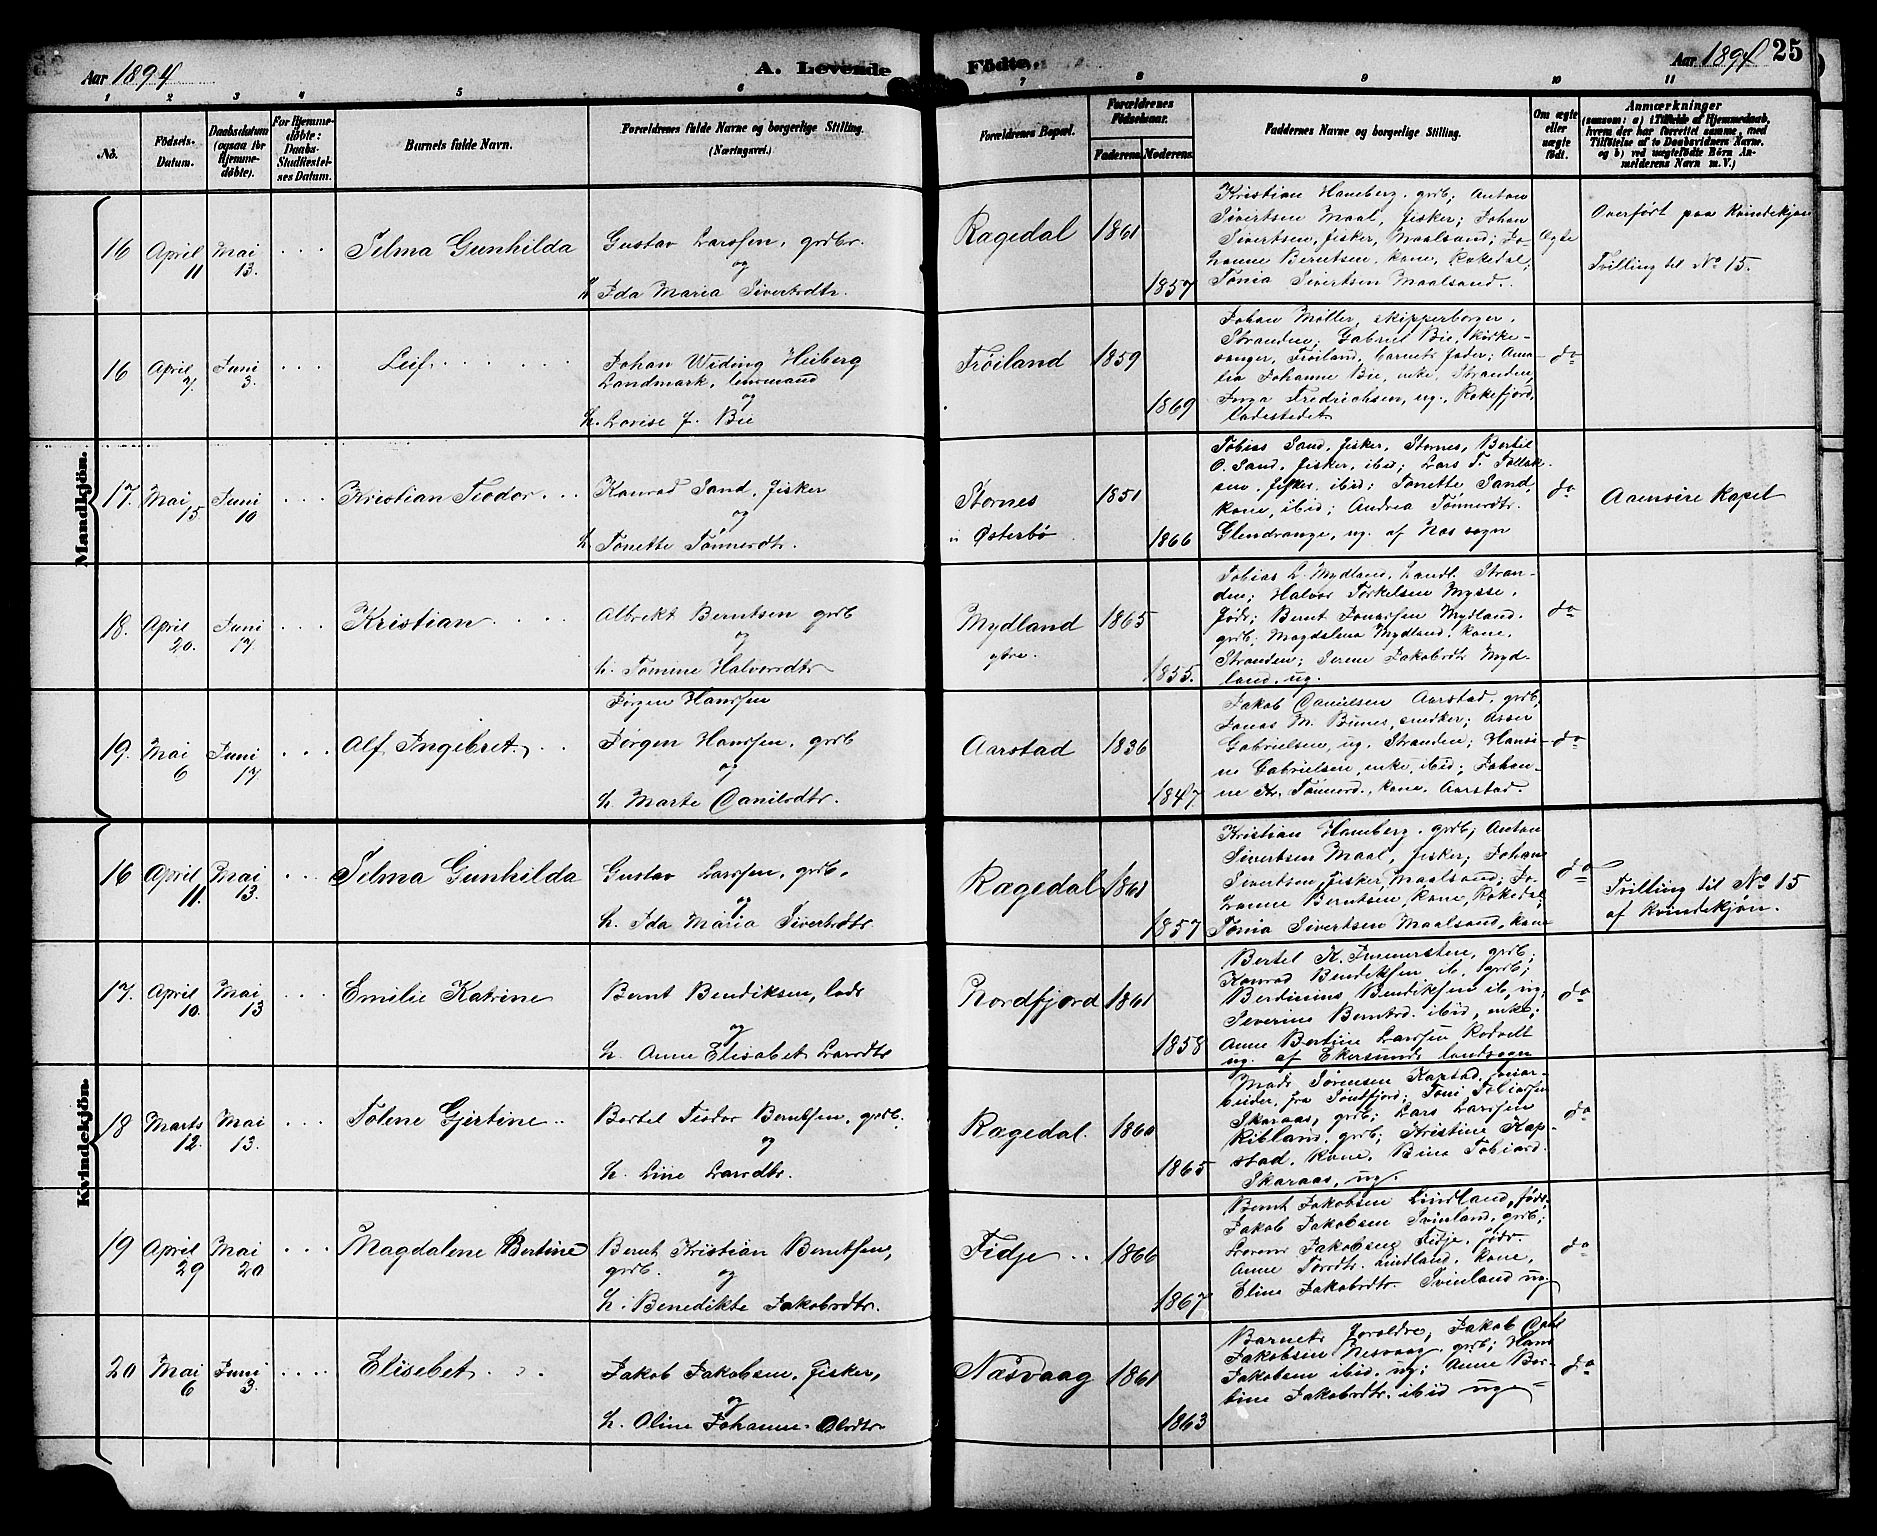 Aar 1894
A. Levende
Födte.
Aar 1894
25
1 2 3 4 5 6 7 8 9 10 11
No.
Födsels-
Datum.
Daabsdatum
(ogsaa for
Hjemme-
døbte).
For Hjemme-
døbte:
Daabs-
Stadfæstel-
ses Datum.
Barnets fulde Navn.
Forældrenes fulde Navne og borgerlige Stilling.
(Næringsvei.)
Forældrenes Bopæl.
Forældrenes
Födselsaar.
Faderens.
Moderens.
Faddernes Navne og borgerlige Stilling.
Om ægte
eller
uægte
født.
Anmærkninger
(saasom: a) i Tilfælde af Hjemmedaab,
hvem der har forrettet samme, med
Tilföielse af to Daabsvidners Navne.
og b) ved uægtefödte Börn An-
melderens Navn m. V.)
Mandkjön.
16 April 11 Mai 13. Selma Gunhilda
Gustav Larssen, grdbr.
og
Ida Maria Sivertsdtr.
Ragedal 1861 1857
Kristian Haneberg. grdb; Anton
Sivertsen Maal, fisker; Johan
Sivertsen, fisker, Maalsand; Jo-
hanne Berntsen, kone, Rakedal;
Tonia Sivertsen Maalsand.
Ægte
Overført paa Kvindekjøn
Tvilling til No 15.
16 April 7. Juni 3. Leif
Johan Widing Heiberg
Landmark, lensmand
og
h. Lovise J. Bie
Frøiland 1859 1869
Johan Møller, skipperborger,
Stranden; Gabriel Bie, kirke-
sanger, Frøiland, barnets fader; Ama-
lia Johanne Bie, enke, Stranden,
Inga Fredrichsen, ug. Rekefjord
ladestedet
do
17. Mai 15 Juni 10 Kristian Teodor
Konrad Sand, fisker
og
h. Tonette Tønnesdtr.
Stornes
i Østerbø
1851 1866
Tobias Sand, fisker, Stornes, Bertel
O. Sand, fisker, ibid; Lars T. Tollak-
sen, fisker, ibid; Tonette Sand,
kone, ibid; Andrea Tønnesdtr.
Glendrange, ug. af Nes sogn
do
Aanasire Kapel
18. April 20. Juni 17. Kristian
Albrekt Berntsen grdb
og
h. Tomine Halvorsdtr
Mydland
ytre.
1865 1855.
Tobias L. Mydland, Landh. Stran-
den; Halvor Torkelsen Mysse,
føder; Bernt Jonassen Mydland.
grdb. Magdalena Mydland, kone,
Stranden; Serene Jakobsdtr Myd-
land. ug.
do
19. Mai 6 Juni 17 Alf Ingebret
Jørgen Hanssen
Jørgen Hanssen, grdb
og
h. Marte Danilsdtr.
Aarstad 1836 1847
Jakob Danielsen Aarstad, grdb,
Jonas M. Birnes, snedker; Asser
Gabrielsen, ug. Stranden; Hansi-
ne Gabrielsen, enke, ibid; Johan-
ne Kr. Tønnesd., kone, Aarstad.
do
Kvindekjön.
16 April 11. Mai 13. Selma Gunhilda
Gustav Larssen, grdb.
og
h. Ida Maria Sivertsdtr
Ragedal 1861 1857
Kristian Haneberg. grdb; Anton
Sivertsen Maal, fisker; Johan
Sivertsen, fisker, Maalsand; Jo-
hanne Berntsen, kone, Rakedal,
Tonia Sivertsen Maalsand, kone
do
Tvilling til No 15
af Kvindekjøn.
17. April 10. Mai 13 Emilie Katrine
Bernt Bendiksen, lods
og
h. Anne Elisabet Larsdtr
Nordfjord 1861 1858
Bertel K. Immersten, grdb;
Konrad Bendiksen ib. grdb;
Berdinius Bendiksen ib, ug;
Severine Berntsd. ibid, enke;
Anne Bertine Larssen Rodvelt
ug. af Ekersunds landsogn
do
18 Marts 12. Mai 13. Tolene Gjertine
Bertel Teodor Berntsen, grdb.
og
h. Line Larsdtr.
Ragedal. 1860 1865
Mads Sørensen Kapstad,
beider, fra Søndfjord; Tøni Tobiassen
Skaraas, grdb; Lars Larssen
Ribland, grdb; Kristine Kap-
stad, kone, Bina Tobiasd.
Skaraas, ug.
do
19 April 29 Mai 20 Magdalene Bertine
Bernt Kristian Berntsen,
grdb.
og
h. Benedikte Jakobsdtr.
Fidje 1866 1867
Bernt Jakobsen Lindland, føds,
Jakob Jakobsen Svinland, grdb;
Jakobsen Fidje, føds.
Anne Torsdtr. Lindland, kone,
Eline Jakobsdtr. Svinland ug
do
20 Mai 6 Juni 3. Elisebet
Jakob Jakobsen, fisker,
og
h. Oline Johanne Olsdtr
Næsvaag 1861 1863
Barnets forældre, Jakob
Jakobsen Nesvaag grdb; Hans
Jakobsen ibid, ug; Anne Ber-
tine Jakobsdtr. ibid ug
do